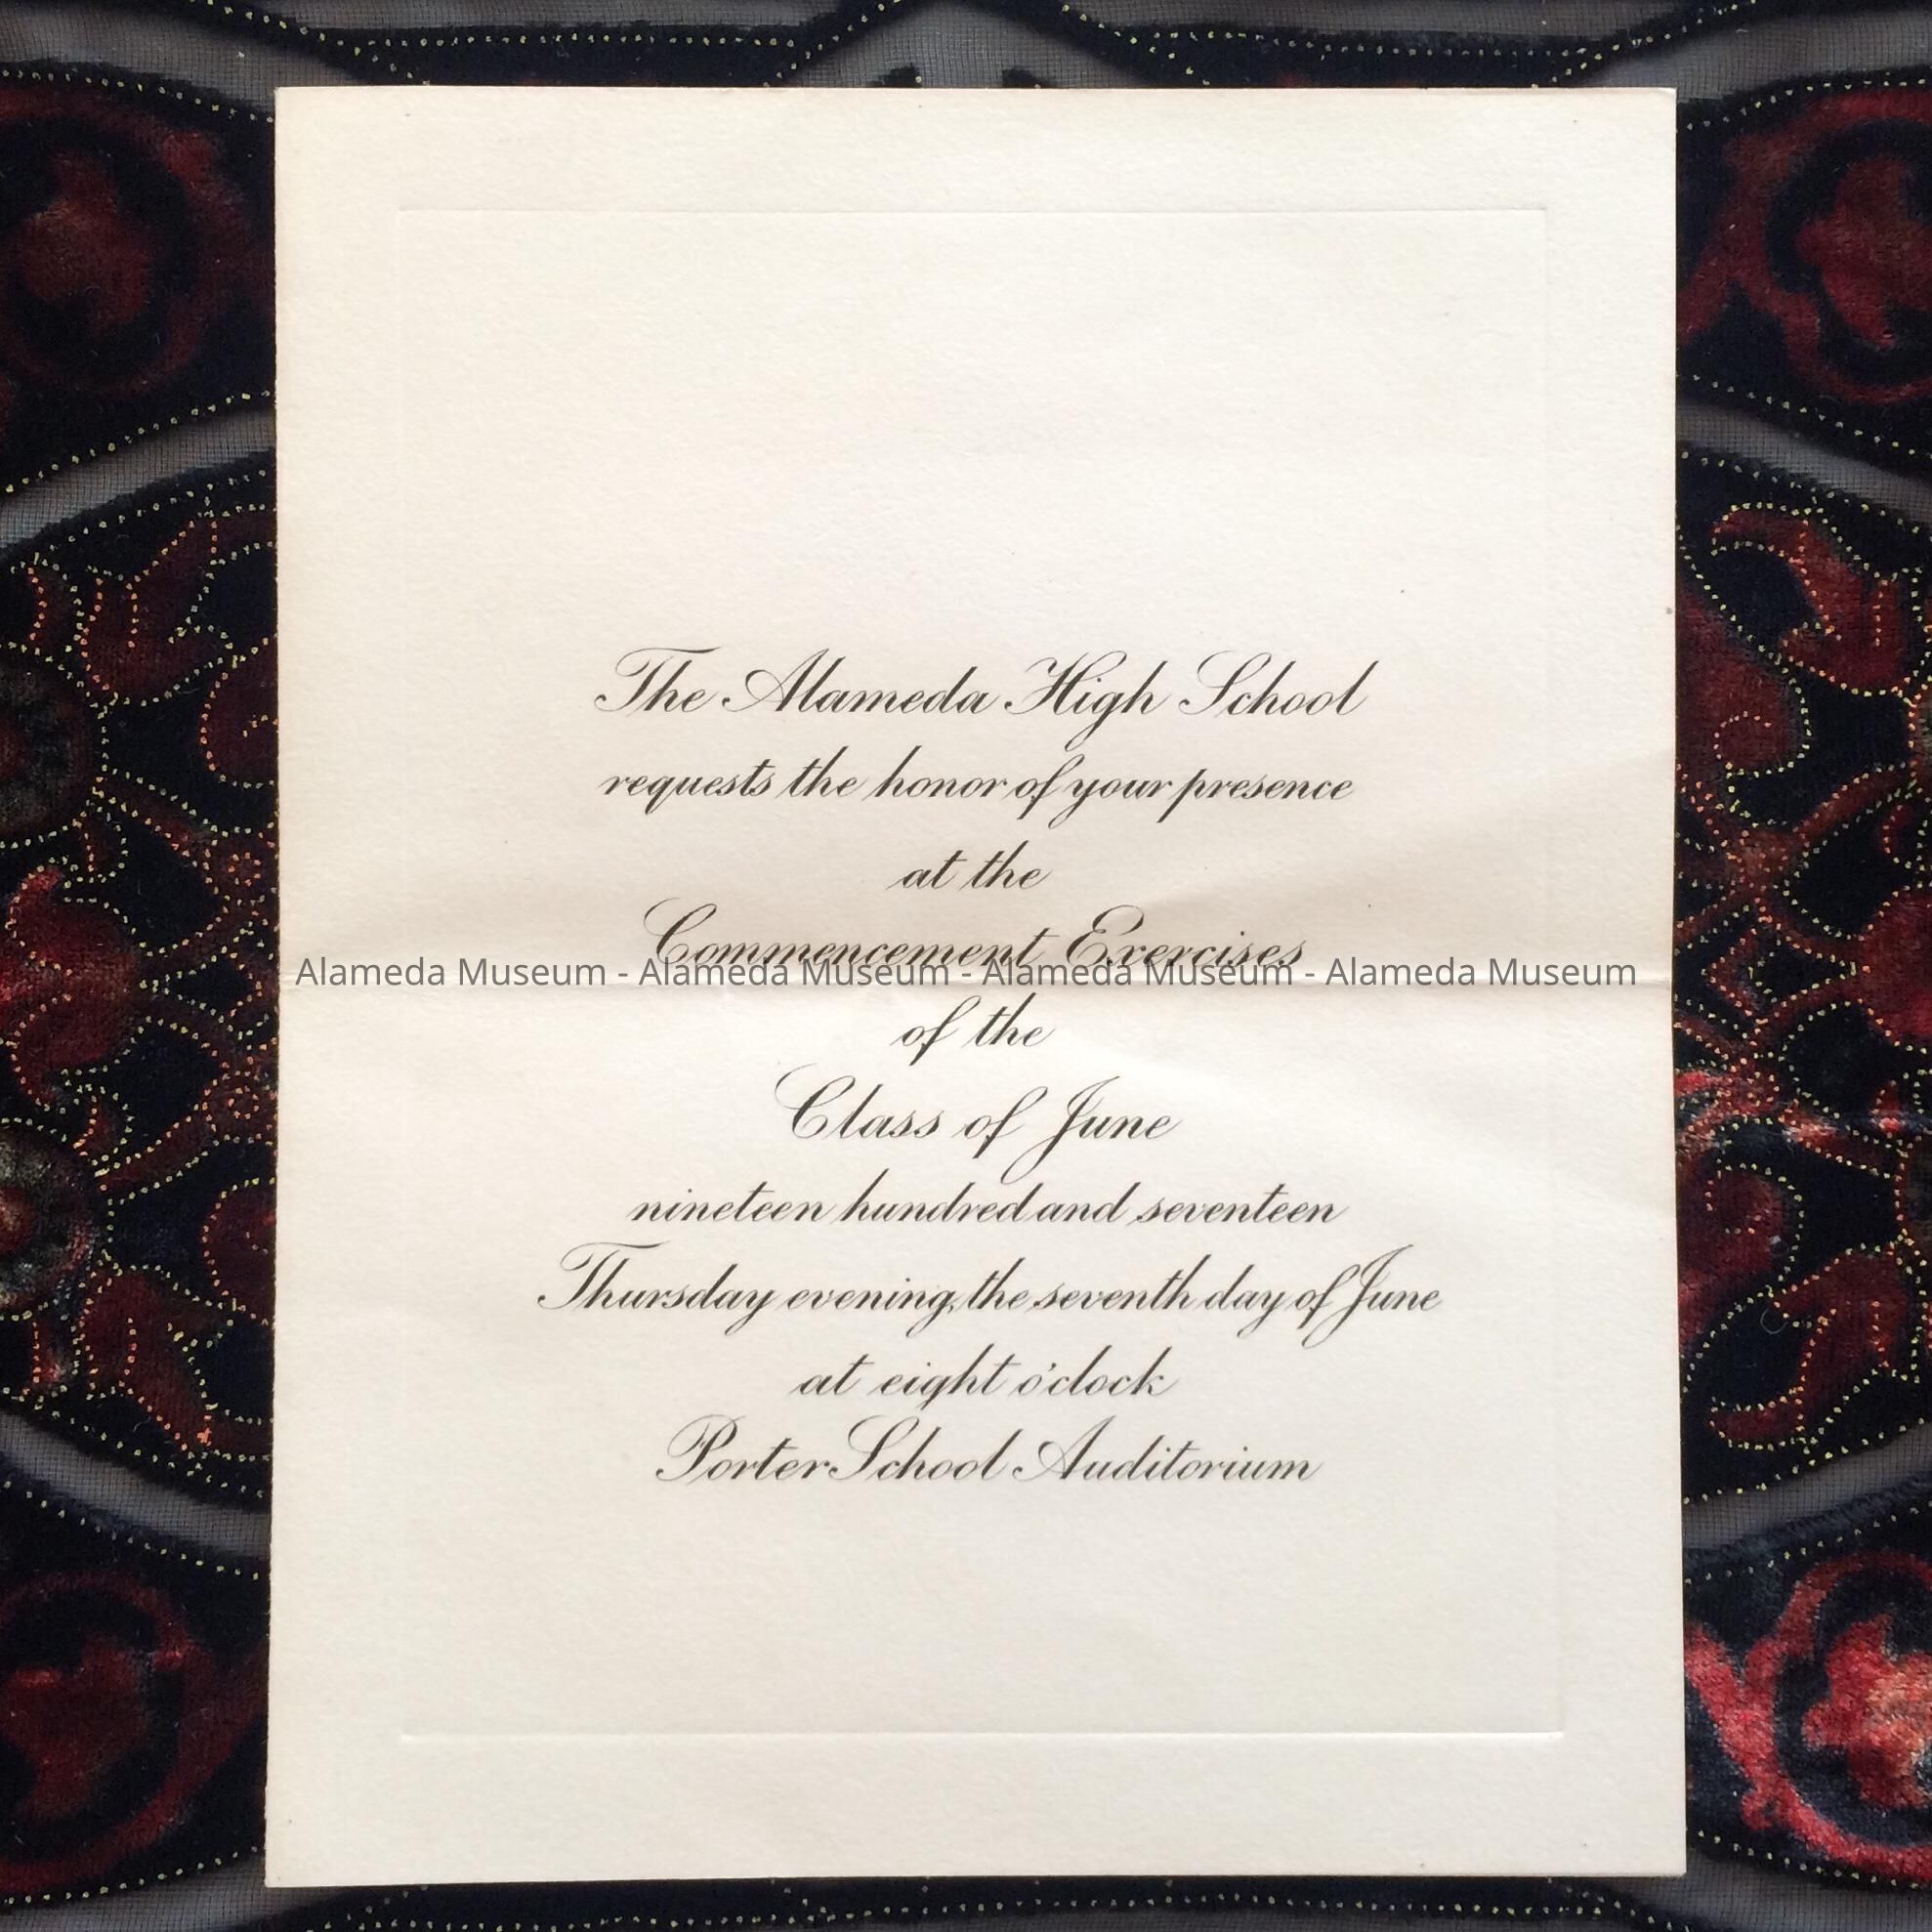 The Alameda High School
requests the honor of your presence
at the
Commencement Exercises
Alameda Museum - Alameda Museum - Alameda Museum - Alameda Museum
of the
Class of June
nineteen hundred and seventeen
Thursday evening, the seventh day of June
at eight o'clock
Porter School Auditorium